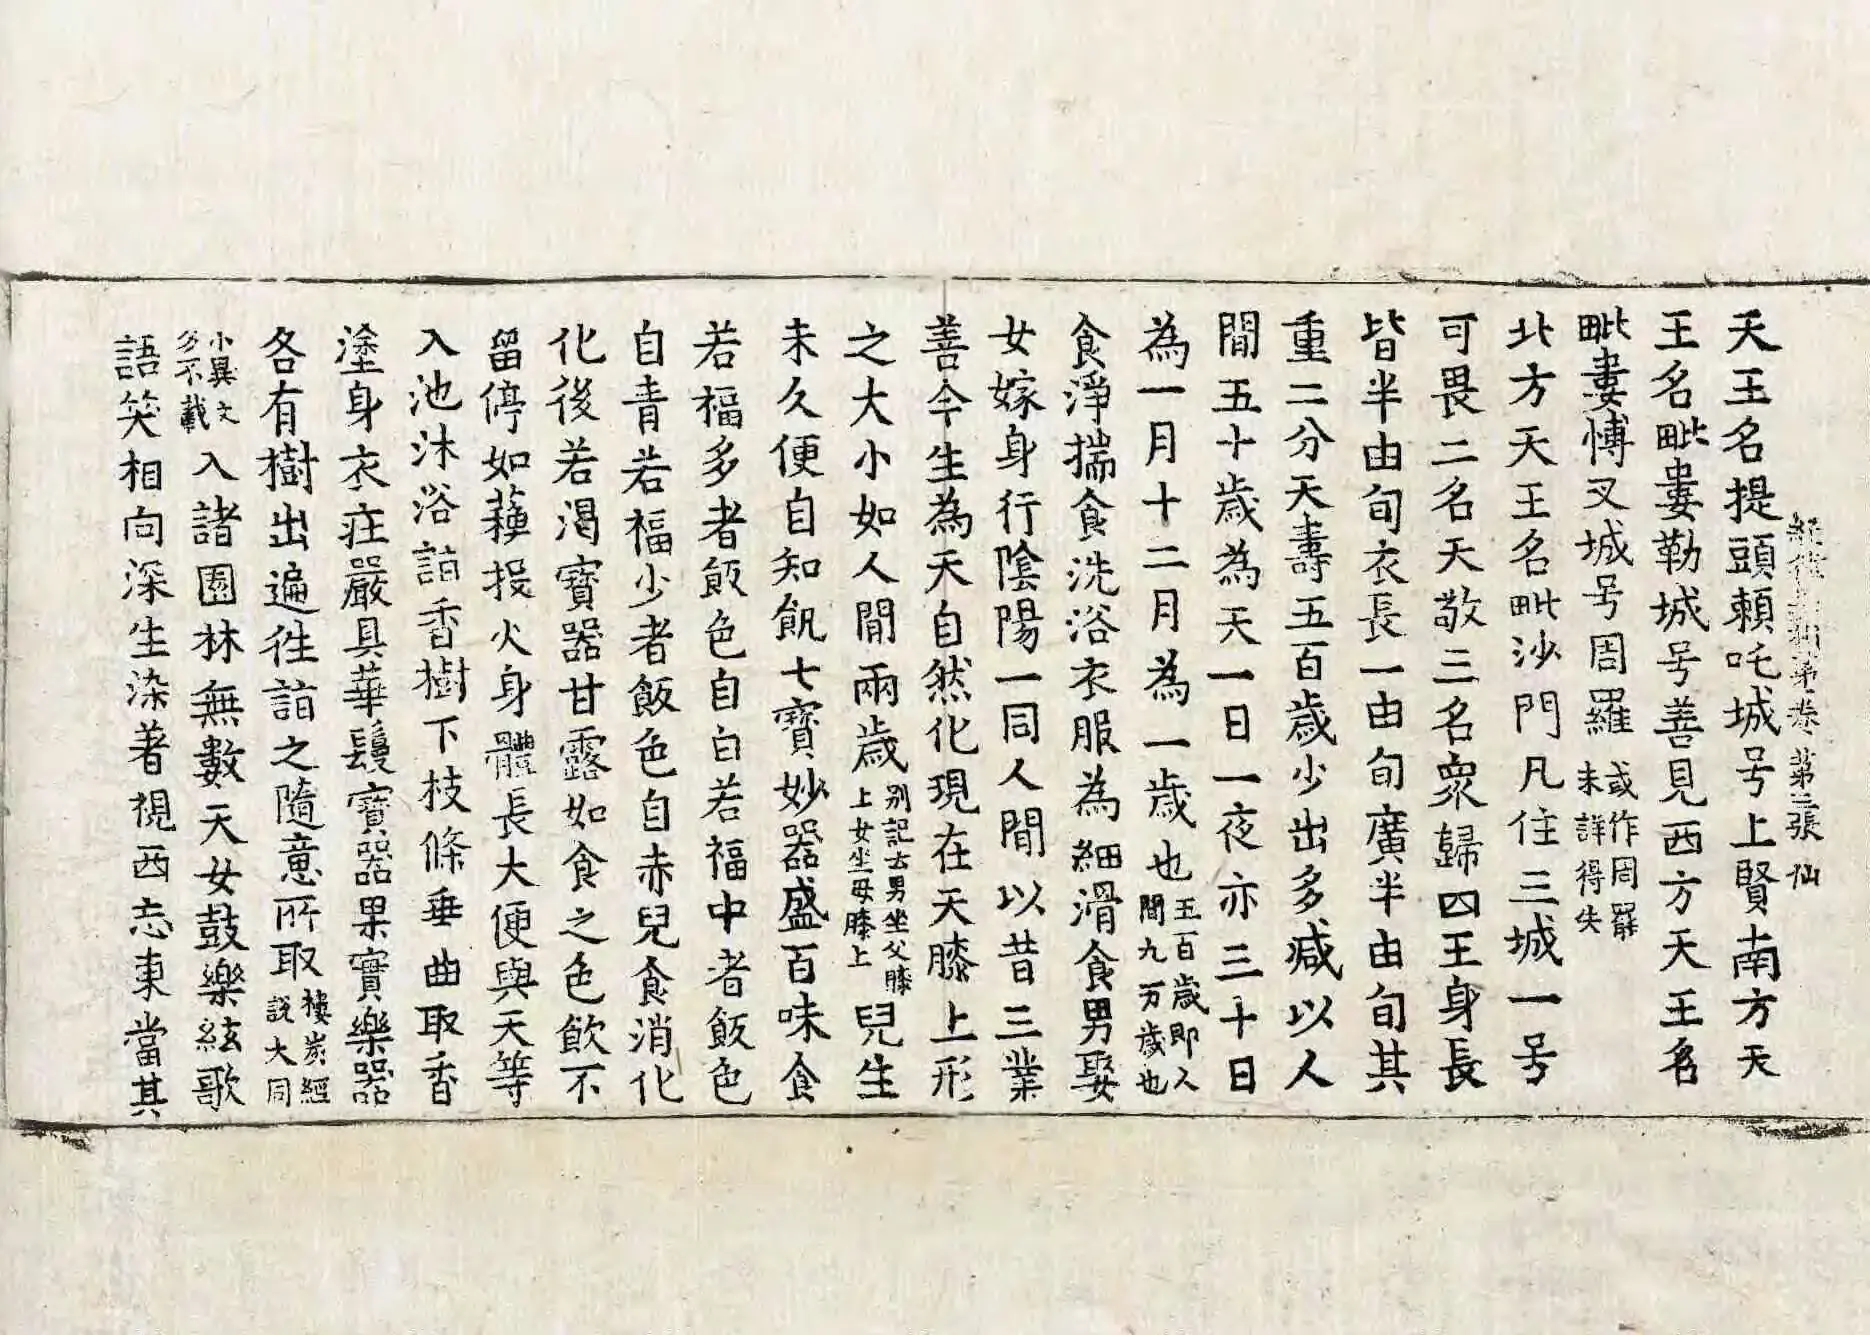 天王名提頭賴吒城号上賢南方天
經律異相第一卷 第三張 仙
王名毗婁勒城号善見西方天王名
毗婁愽叉城号周羅 或作周羅未詳得失
北方天王名毗沙門凡住三城一号
可畏二名天敬三名衆歸四王身長
皆半由旬衣長一由旬廣半由旬其
重二分天壽五百歲少出多减以人
間五十歲為天一日一夜亦三十日
為一月十二月為一歲也 五百歲即人間九万歲也
食淨揣食洗浴衣服為細滑食男娶
女嫁身行陰陽一同人間以昔三業
善今生為天自然化現在天膝上形
之大小如人間兩歲 別記云男坐父膝上女坐母膝上 兒生
未久便自知飢七寶妙器盛百味食
若福多者飯色自白若福中者飯色
自青若福少者飯色自赤兒食消化
化後若渴寶器甘露如食之色飲不
留停如蘓投火身體長大便與天等
入池沐浴詣香樹下枝條垂曲取香
塗身衣莊嚴具華鬘寶器果實樂器
各有樹出遍徃詣之隨意所取 樓炭經說大同
小異文多不載 入諸園林無數天女鼓樂絃歌
語笑相向深生染著視西忘東當其